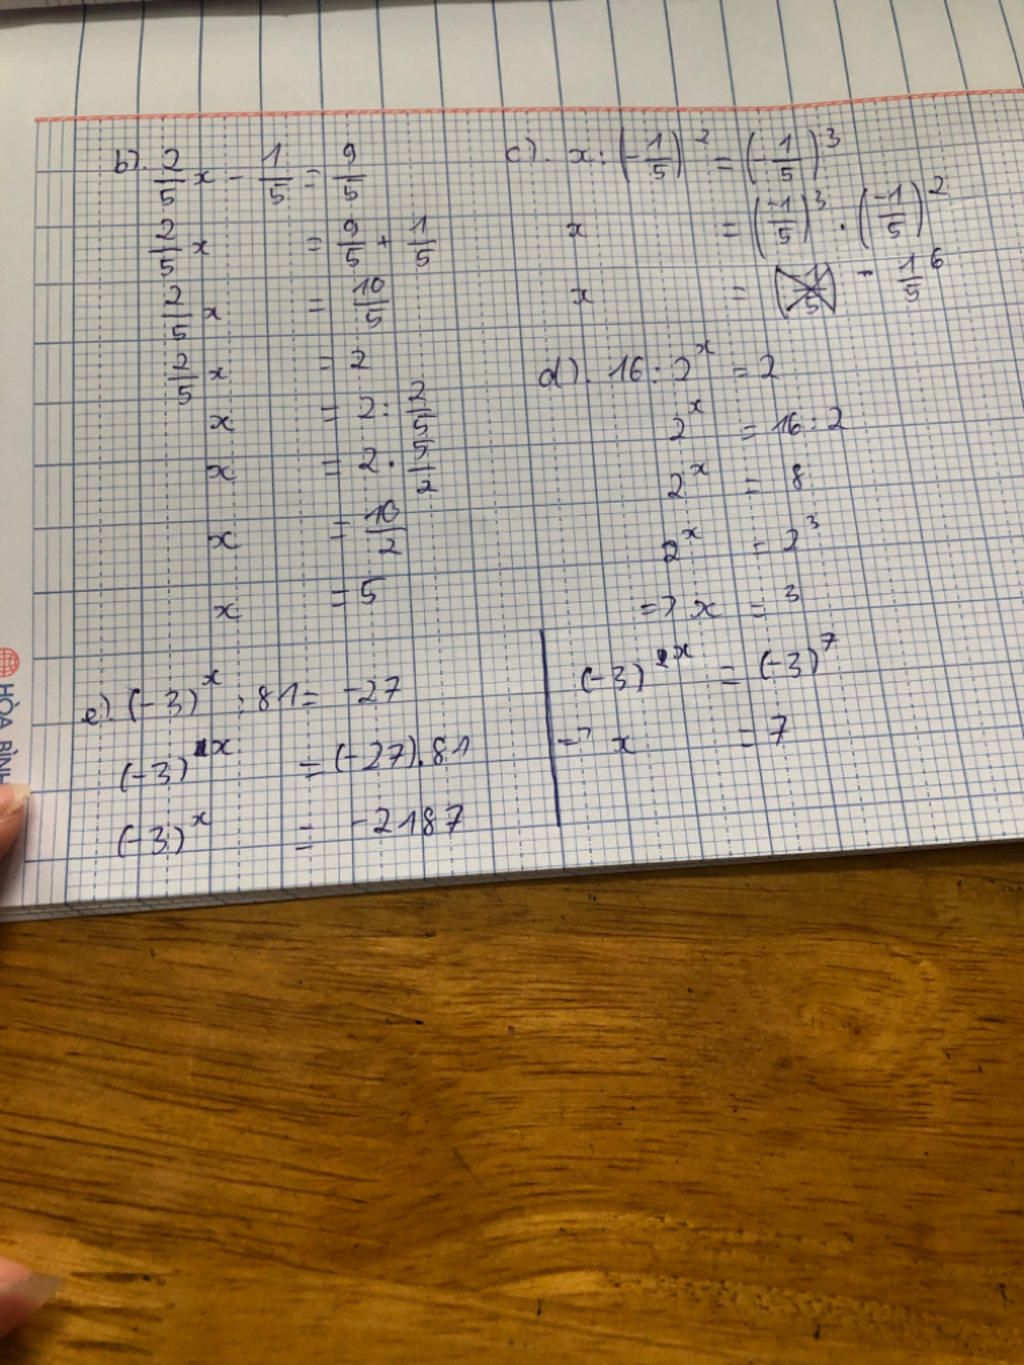 b). 2/5 x - 1/5 = 9/5
2/5 x = 9/5 + 1/5
2/5 x = 10/5
2/5 x = 2
x = 2 : 2/5
x = 2 . 5/2
x = 10/2
x = 5
c). x : (-1/5)^2 = (-1/5)^3
x = (-1/5)^3 . (-1/5)^2
x = - 1/5^6
d). 16 : 2^x = 2
2^x = 16 : 2
2^x = 8
2^x = 2^3
=> x = 3
e). (-3)^x : 81 = -27
(-3)^x = (-27).81
(-3)^x = -2187
(-3)^x = (-3)^7
=> x = 7
HÒA BÌNH